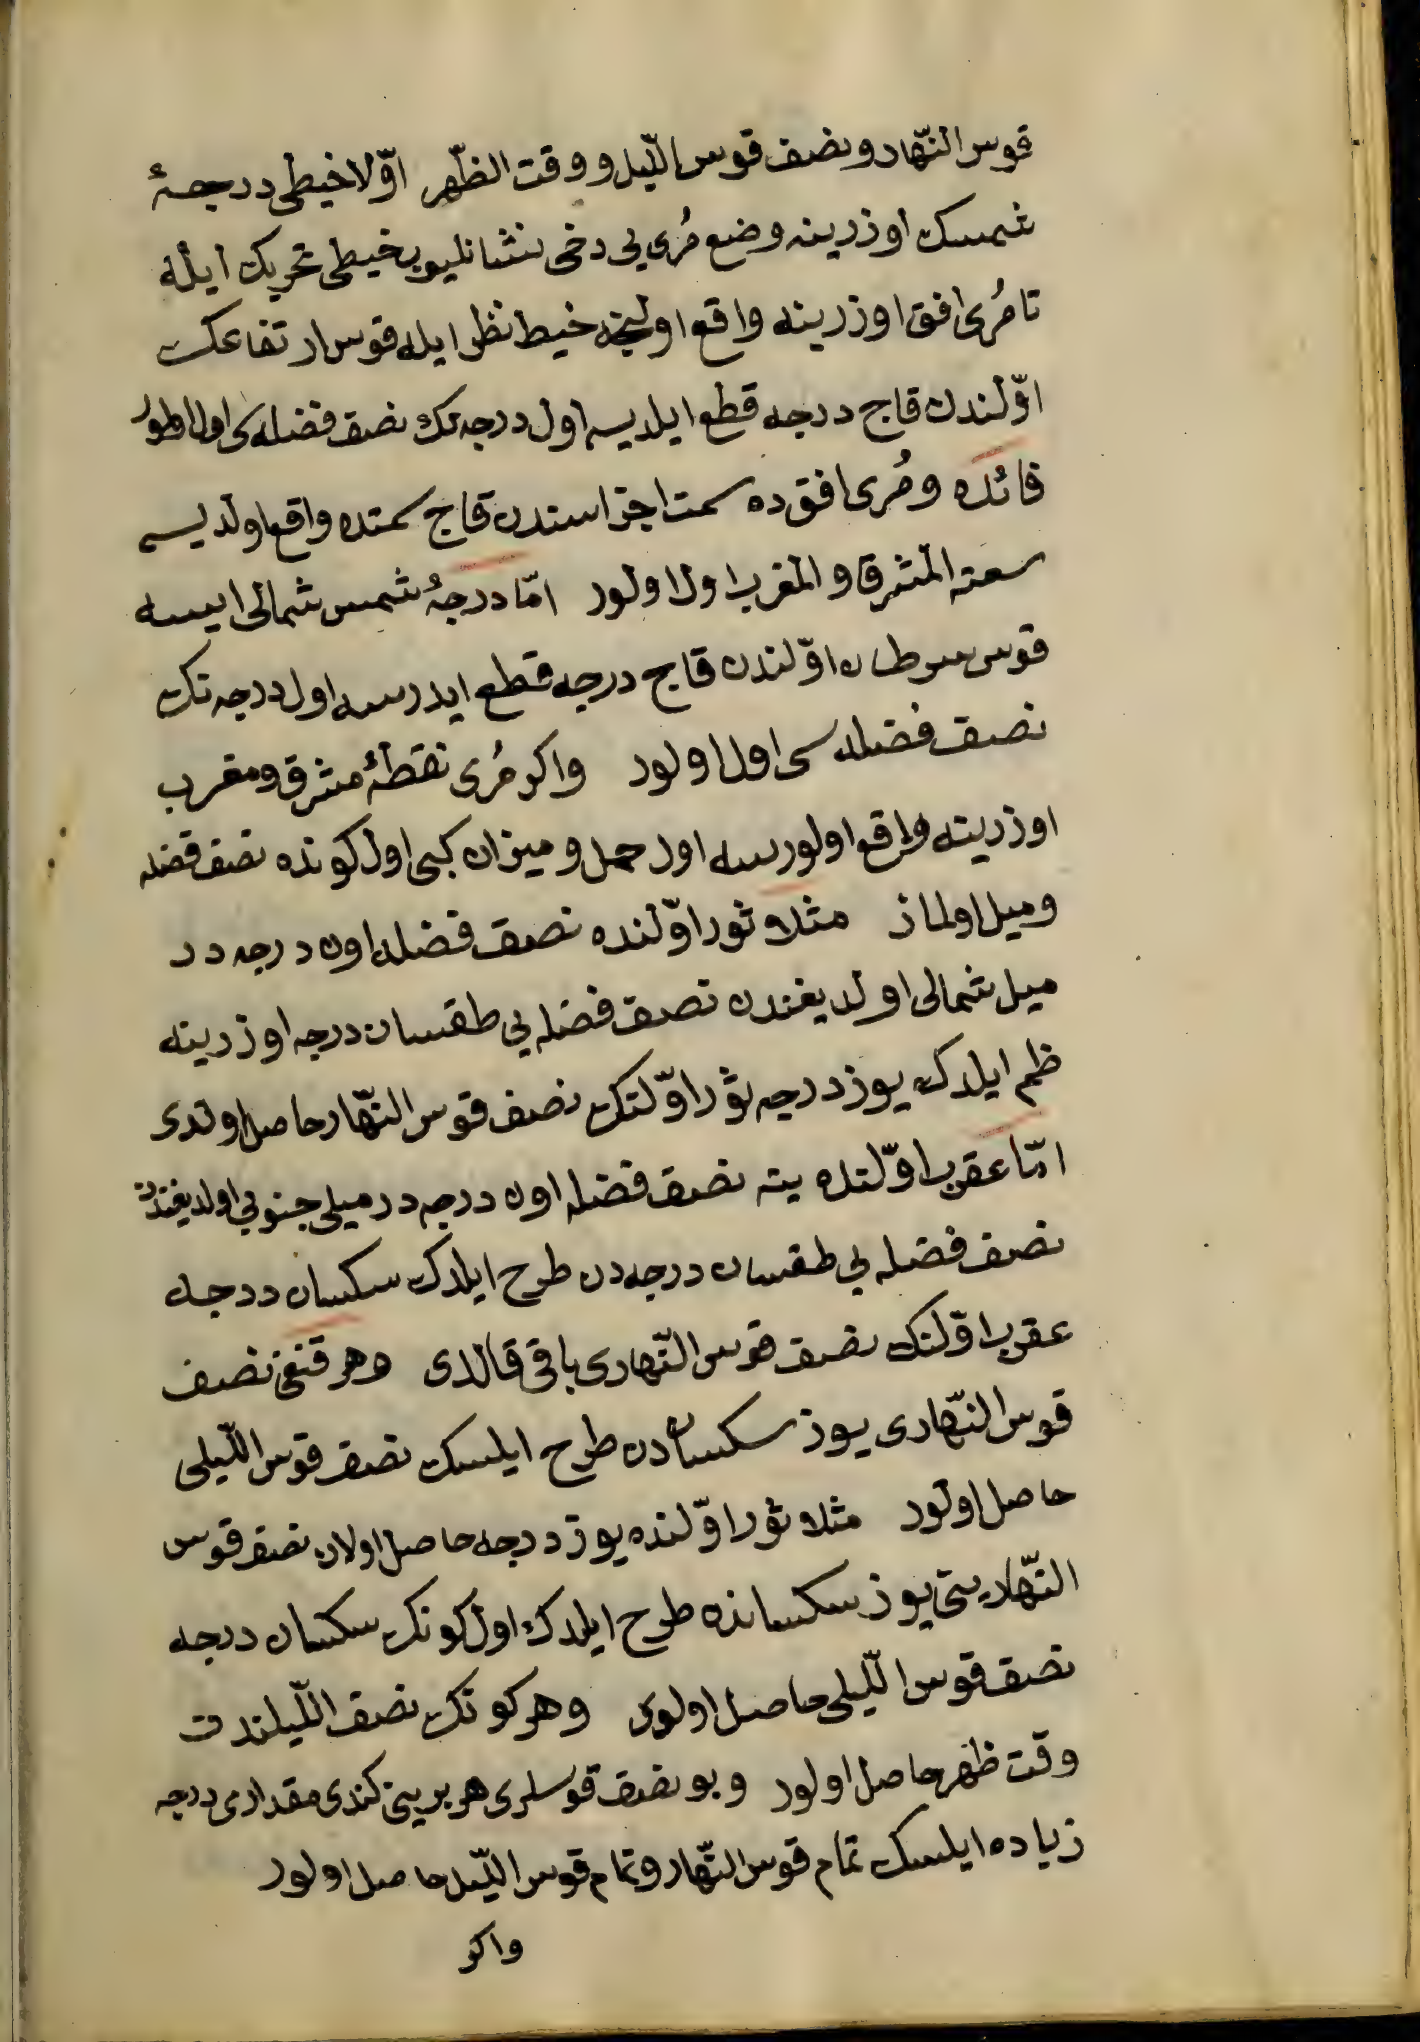 قوس النّهار و نصف قوس اللّيل و وقت الظّهر اوّلا خيطى درجهٔ
شمسك اوزرينه وضع مُرى يى دخى نشانليوب خيطى تحريك ايله
تا مُرى افق اوزرينه واقع اولنجه خيط نظر ايله قوس ارتفاعك
اوّلندن قاج درجه قطع ايلديسه اول درجه تك نصف فضله سى اولا اولور
فائده و مُرى افق ده سمت اجزاسندن قاج سمتده واقع اولديسه
سعة المشرق و المغرب اولا اولور امّا درجهٔ شمس شمالى ايسه
قوس سرطان اوّلندن قاج درجه قطع ايدرسه اول درجه تك
نصف فضله سى اولا اولور واكر مُرى نقطهٔ مشرق و مغرب
اوزرينه واقع اولورسه اول حمل و ميزان كبى اول كونده نصف فضله
و ميل اولماز مثلا ثور اوّلنده نصف فضله اون درجه در
ميل شمالى اولديغندن نصف فضله يى طقسان درجه اوزرينه
ظم ايلدك يوز درجه ثور اوّلنك نصف قوس النّهار حاصل اولدى
امّا عقرب اوّلنده ينه نصف فضله اون درجه در ميلى جنوبى اولديغندن
نصف فضله يى طقسان درجه دن طرح ايلدك سكسان درجه
عقرب اوّلنك نصف قوس النّهارى باقى قالدى و هر قنغى نصف
قوس النّهارى يوز سكسان دن طرح ايلسك نصف قوس اللّيلى
حاصل اولور مثلا ثور اوّلنده يوز درجه حاصل اولان نصف قوس
النّهارينى يوز سكسانده طرح ايلدك اول كونك سكسان درجه
نصف قوس اللّيلى حاصل اولور و هر كونك نصف اللّيلندن
وقت ظهر حاصل اولور و بو نصف قوسلرى هر برينى كندى مقدارى درجه
زياده ايلسك تمام قوس النّهار و تمام قوس اللّيل حاصل اولور
واكر